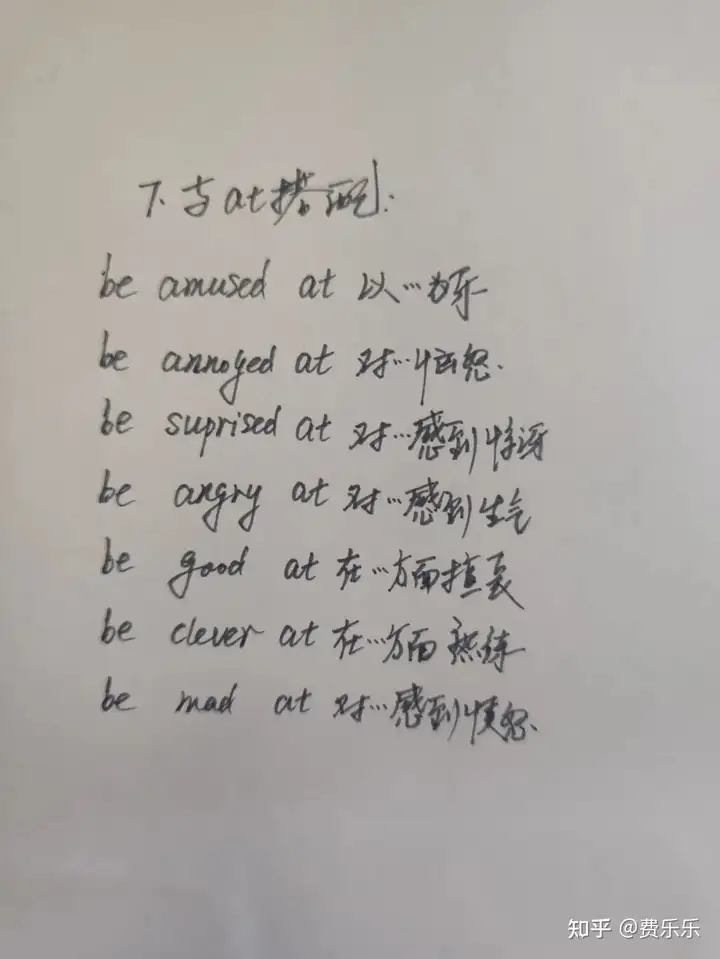 7. 与at搭配:
be amused at 以…为乐
be annoyed at 对…恼怒.
be suprised at 对…感到惊讶
be angry at 对…感到生气
be good at 在…方面擅长
be clever at 在…方面熟练
be mad at 对…感到愤怒.
知乎 @费乐乐